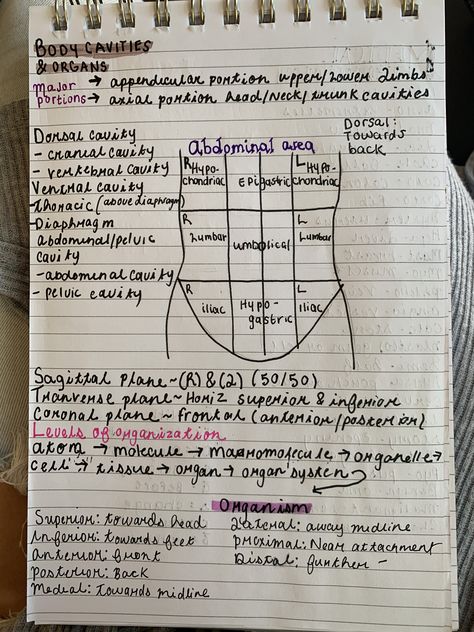 BODY CAVITIES
& ORGANS
major → appendicular portion upper/lower limbs
portions → axial portion head/neck/trunk cavities
Dorsal:
Towards
back
Dorsal cavity
- cranial cavity
- vertebral cavity
Ventral cavity
- thoracic (above diaphragm)
- Diaphragm
abdominal/pelvic
cavity
- abdominal cavity
- pelvic cavity
Abdominal area
R Hypo-chondriac Epigastric L Hypo-chondriac
R Lumbar umbilical L Lumbar
R iliac Hypo-gastric L iliac
Sagittal plane ~ (R) & (L) (50/50)
Tranverse plane ~ Horiz superior & inferior
Coronal plane ~ frontal (anterior/posterior)
Levels of organization
atom → molecule → macromolecule → organelle →
cell → tissue → organ → organ system
Organism
Superior: towards head
Inferior: towards feet
anterior: front
posterior: Back
Medial: towards midline
Lateral: away midline
proximal: Near attachment
Distal: further -